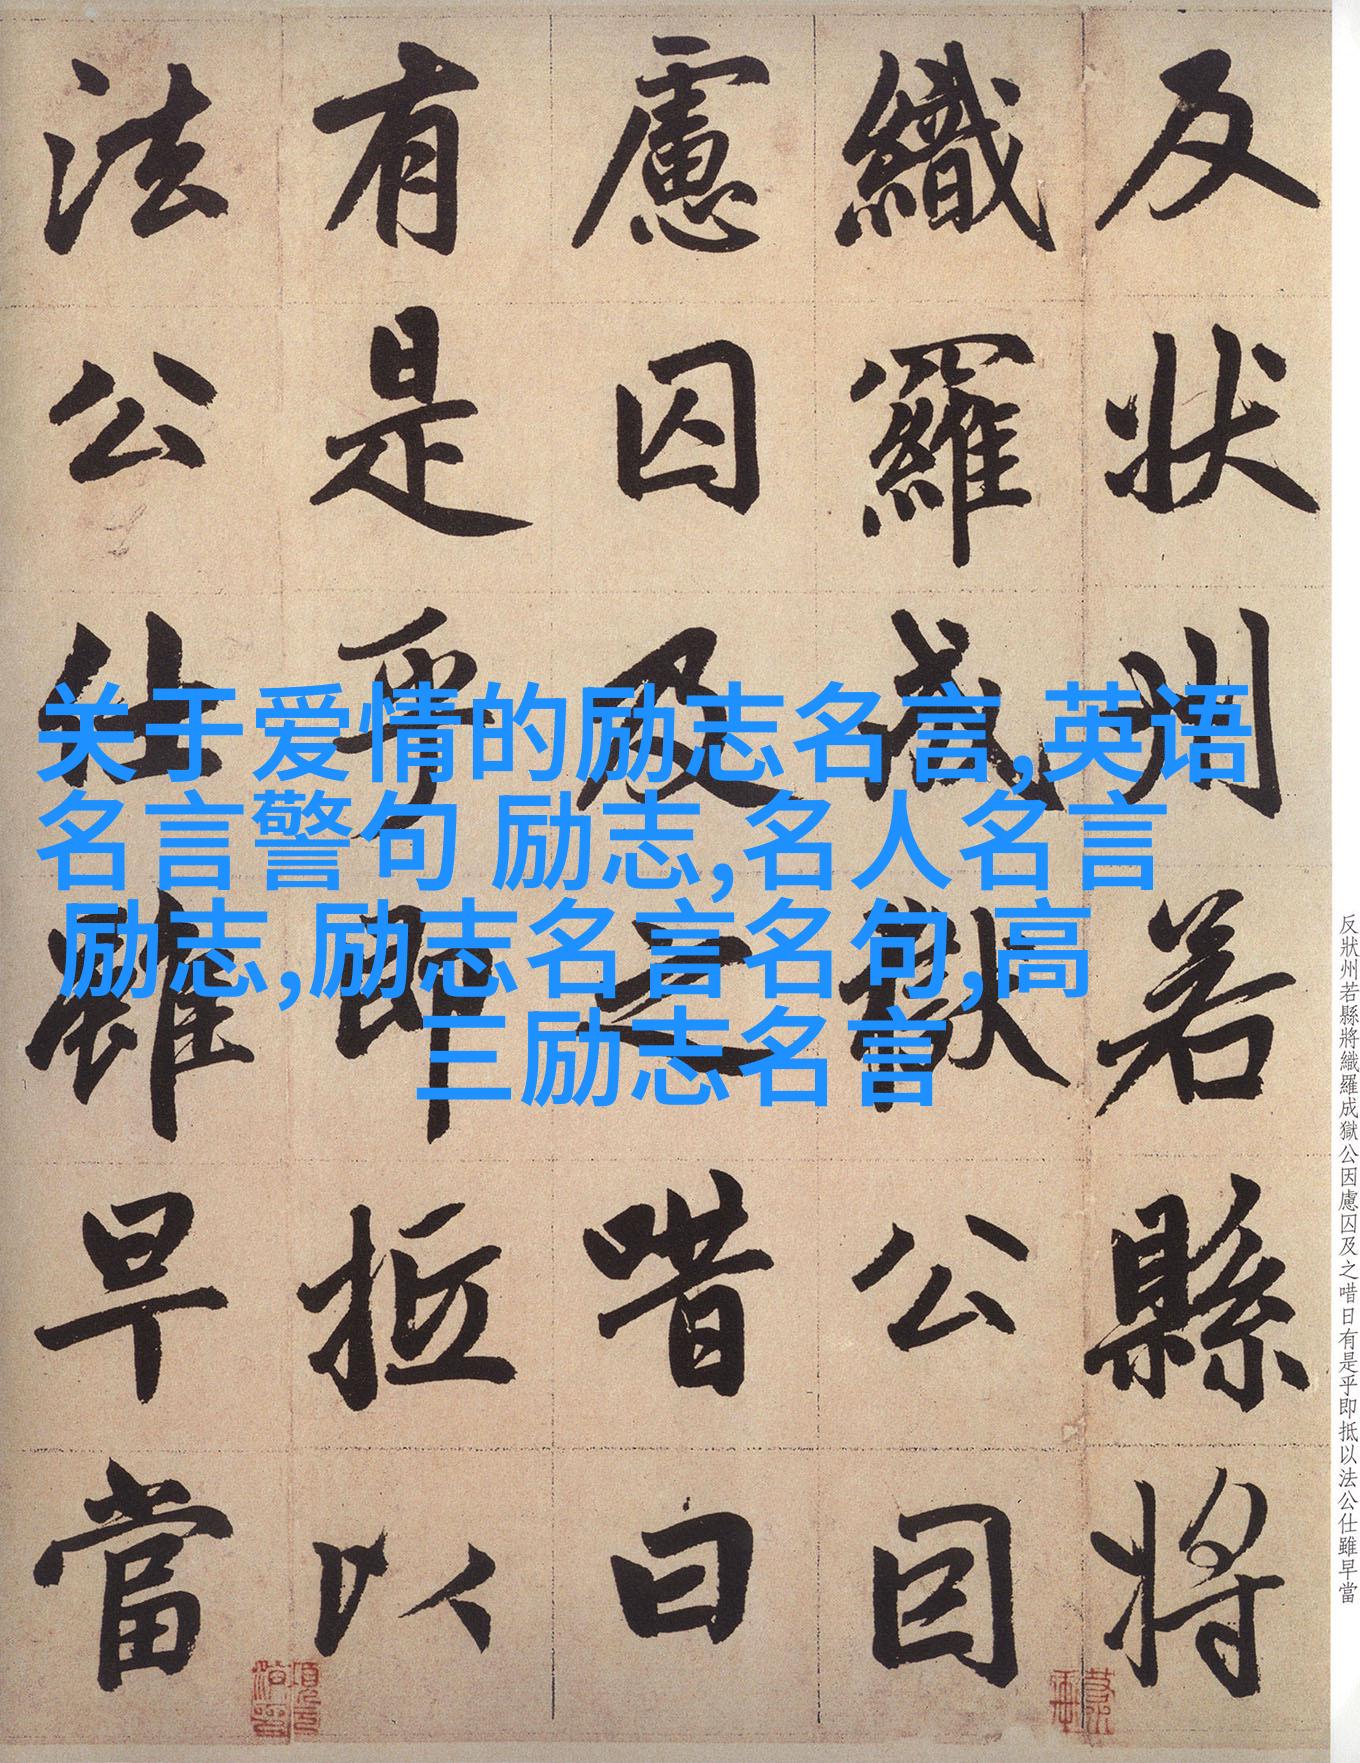 反状州若縣將
織羅成獄公因
慮囚及之唶曰
有是乎即抵以
法公仕雖早當
关于爱情的励志名言,英语
名言警句 励志,名人名言
励志,励志名言名句,高
三励志名言
反狀州若縣將織羅成獄公因慮囚及之唶日有是乎即抵以法公仕雖早當